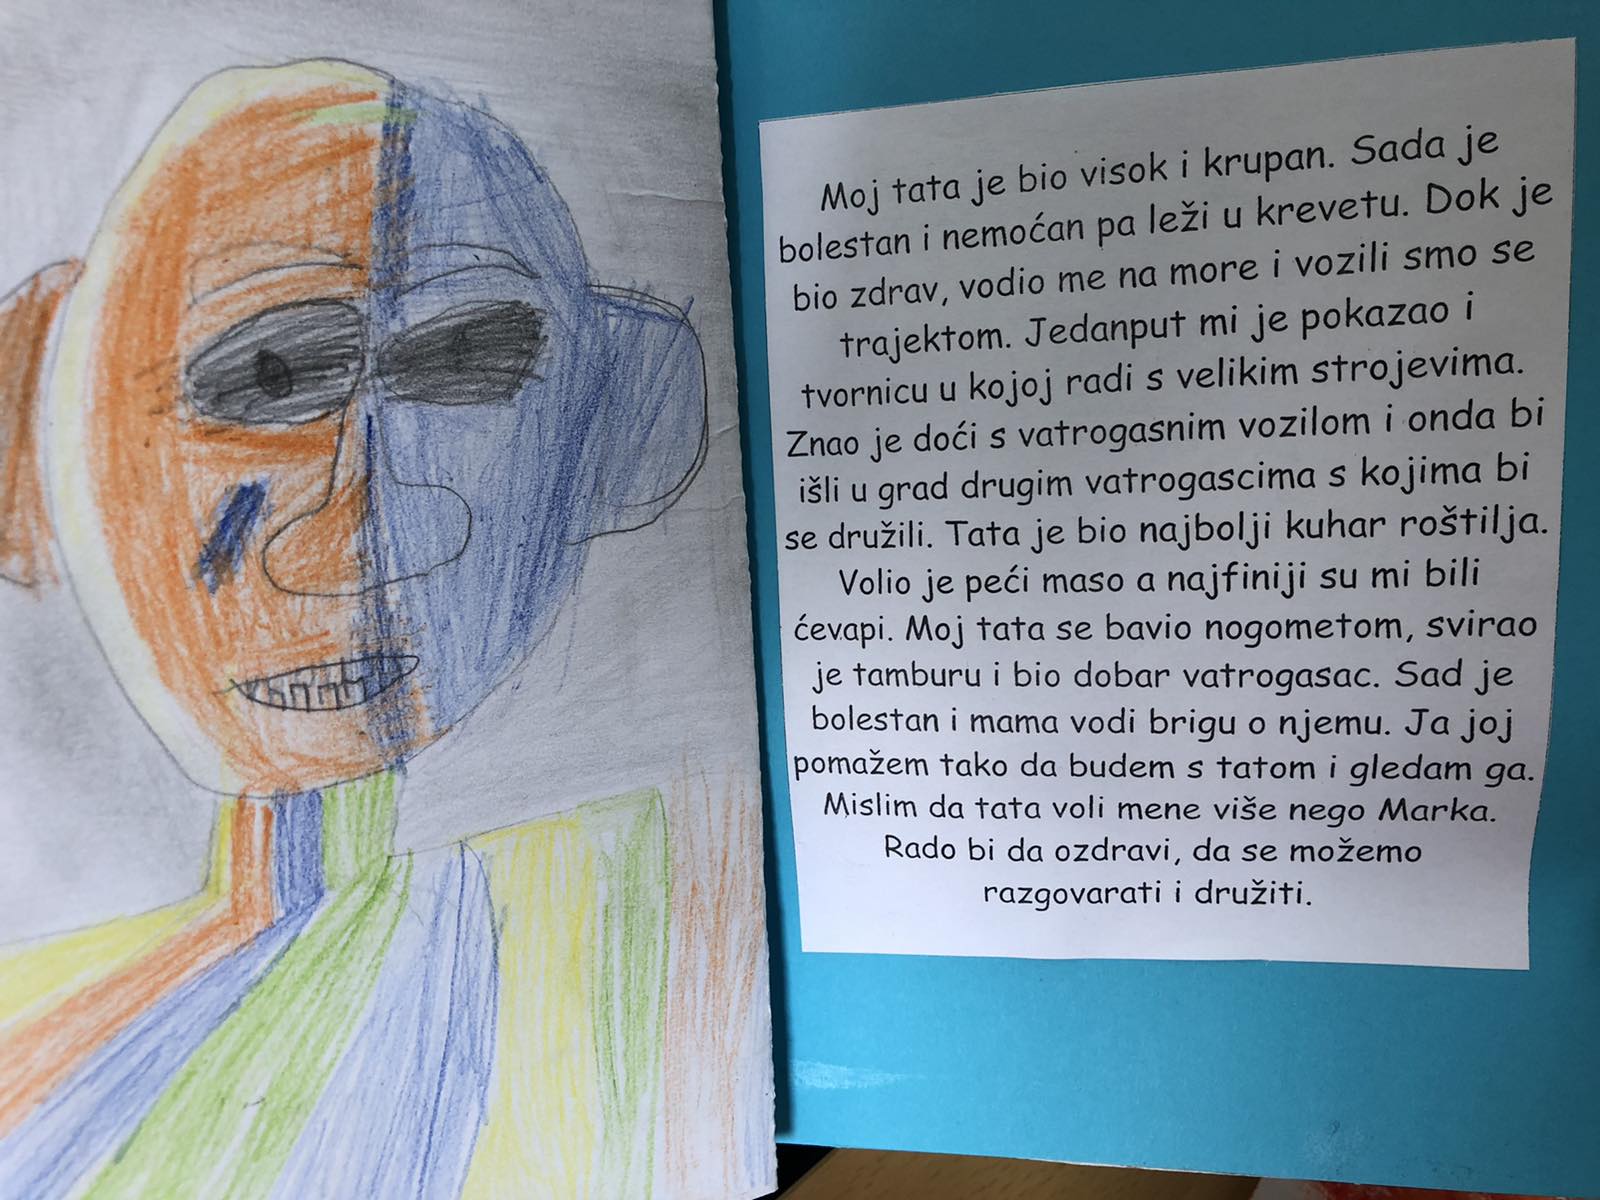 Moj tata je bio visok i krupan. Sada je
bolestan i nemoćan pa leži u krevetu. Dok je
bio zdrav, vodio me na more i vozili smo se
trajektom. Jedanput mi je pokazao i
tvornicu u kojoj radi s velikim strojevima.
Znao je doći s vatrogasnim vozilom i onda bi
išli u grad drugim vatrogascima s kojima bi
se družili. Tata je bio najbolji kuhar roštilja.
Volio je peći maso a najfiniji su mi bili
ćevapi. Moj tata se bavio nogometom, svirao
je tamburu i bio dobar vatrogasac. Sad je
bolestan i mama vodi brigu o njemu. Ja joj
pomažem tako da budem s tatom i gledam ga.
Mislim da tata voli mene više nego Marka.
Rado bi da ozdravi, da se možemo
razgovarati i družiti.